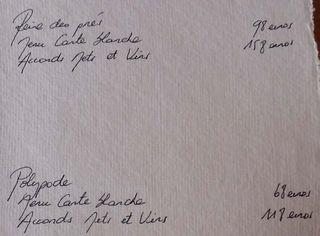 Reine des prés
Menu Carte blanche 98 euros
Accords Mets et Vins 158 euros
Polypode
Menu Carte blanche 68 euros
Accords Mets et Vins 118 euros